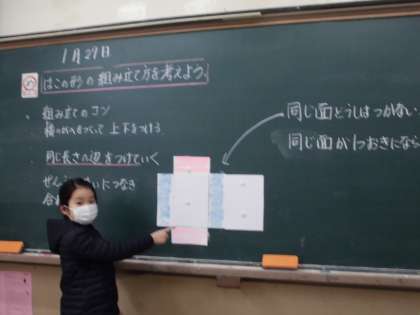 1月29日
め はこの形の組み立て方を考えよう。
組み立てのコツ
横の4つをつくって上下をつける
同じ長さの辺をつけていく
ぜんぶ
つなき
同じ面どうしはつかない
同じ面が1つおきになら